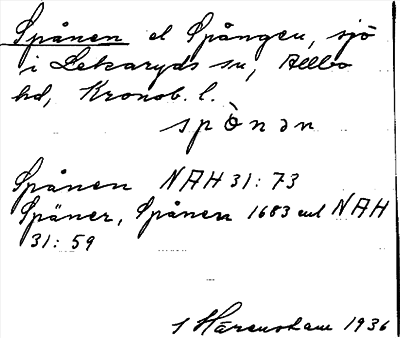 Spånen el Spången, sjö
i Lekaryds sn, Allbo
hd, Kronob. l.
spò̀nən
Spånen NAH 31: 73
Späner, Spånen 1683 enl NAH
31: 59
1936